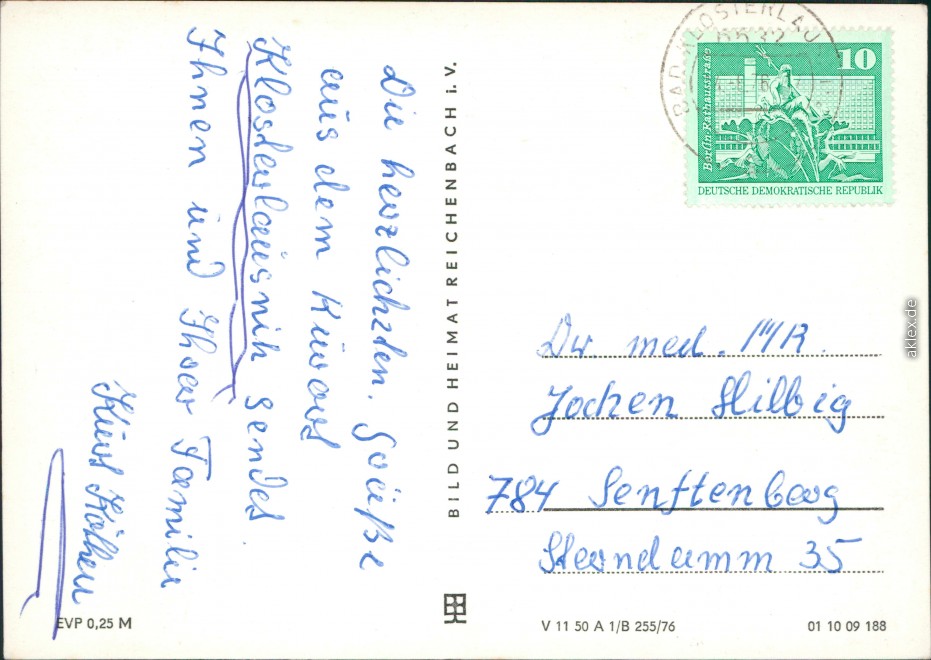 Die herzlichsten. Grüße
aus dem Kurort
Klosterlausnitz sendet
Ihnen und Ihrer Familie
Kurt
EVP 0,25 M
BILD UND HEIMAT REICHENBACH I. V.
BAD KLOSTERLAU
6532
10
Berlin·Rathausstraße
DEUTSCHE DEMOKRATISCHE REPUBLIK
Dr. med. MR.
Jochen Hilbig
784 Senftenberg
Sterndamm 35
V 11 50 A 1/B 255/76
01 10 09 188
aklex.de